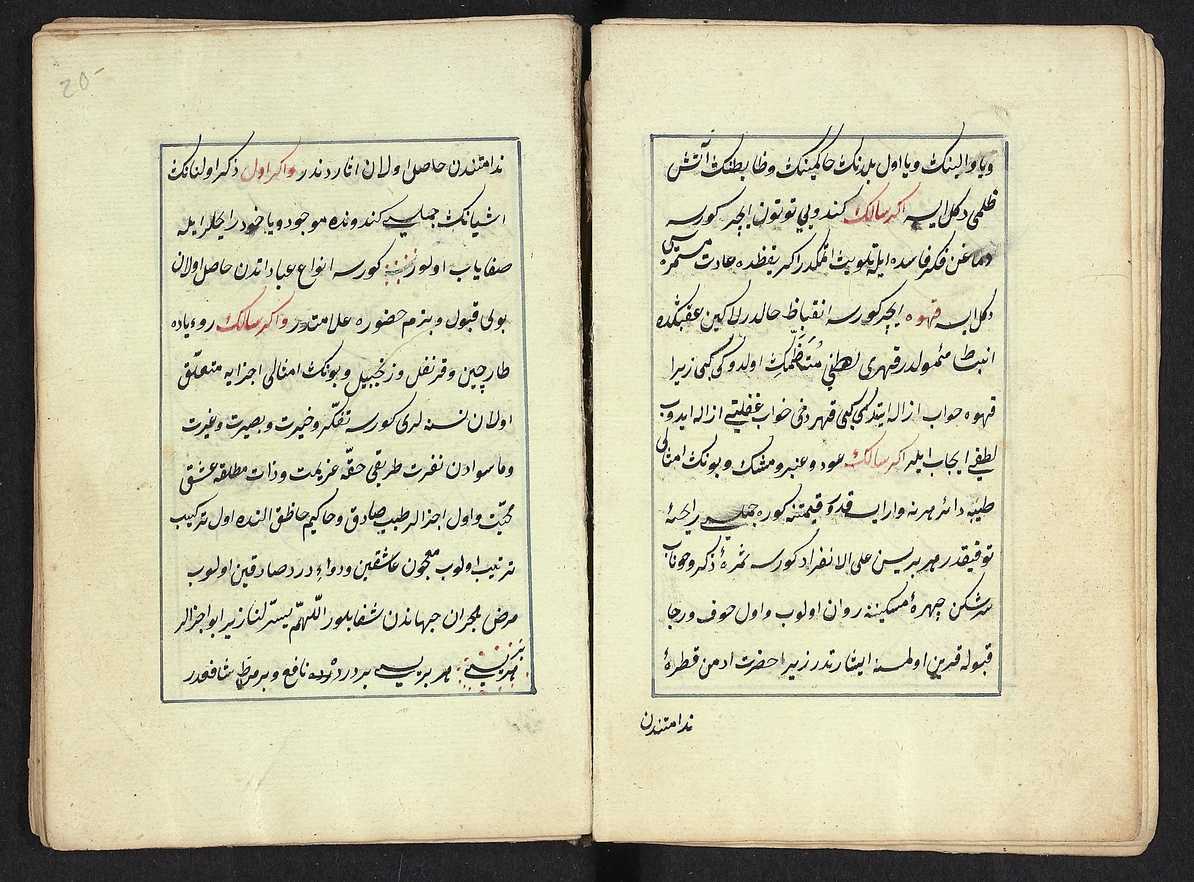 ویا والینك ویا اول بلدنك حاكمینك وضابطنك آتش
ظلمی دكل ایسه اكر سالك كندویی توتون ایچر كورسه
دماغن فكر فاسده ایله تلویث اتمكدر اكر یقظه‌ده عادت مستمره‌سی
دكل ایسه قهوه ایچر كورسه انقباظ حالدر لاكین عقبنده
انبساط مئمولدر قهری لطفی متضمك اولدوغی كبی زیرا
قهوه خواب ازاله ایتدكی كبی قهر دخی خواب غفلتی ازاله ایدوب
لطفی ایجاب ایلر اكر سالك عود وعنبر ومشك وبونك امثالی
طیبه دائر هر نه وار ایسه قدر وقیمتنه كوره جمله‌سی رایحهٔ
توفیقدر هر بریسن علی الانفراد كورسه ثمرهٔ ذكر وخوناب
سرشكن چهرهٔ مسكینه روان اولوب واول خوف ورجا
قبوله قرین اولمسنه ایشارتدر زیرا حضرت ادمن قطرهٔ
ندامتندن
20
ندامتندن حاصل اولان اثاردندر واكر اول ذكر اولنانك
اشیانك جمله‌سی كندونده موجود ویا خود رایحه‌لر ایله
صفایاب اولور كورسه انواع عباداتدن حاصل اولان
بولی قبول وبزم حضوره علامتدر واكر سالك رویاده
طارچین وقرنفل وزنجبیل وبونك امثالی اجزایه متعلق
اولان نسنه‌لری كورسه تفكر وخیرت وبصیرت وغیرت
وماسوادن نفرت طریقی حقه عزیمت وذات مطلقه عشق
محبت واول اجزالر طبیب صادق وحاكیم حاظق النده اول تركیب
ترتیب اولوب معجون عاشقین ودواء درد صادقین اولوب
مرض هجران جهاندن شفا بلور اللهم یسر لنا زیرا بو اجزالر
هر بریسی بر درده نافع وبر مرضه شافیدر